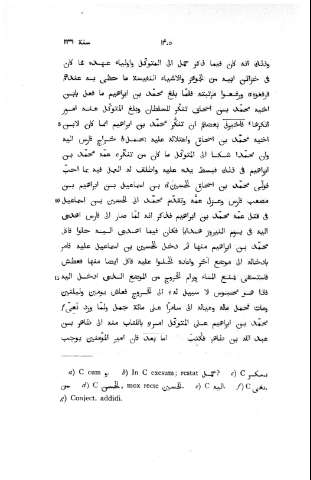 سنة ٢٣٦ ١٤٠٥
وذلك انه كان فيما ذكر حمل الى المتوكل واولياء عهده مما كان
فى خزائن ابيه من الجوهر والاشياء النفيسة ما حظى به عندهم
فرفعوه ورفعوا مرتبته فلمّا بلغ محمّد بن ابراهيم ما فعل بابن
اخيه محمّد بن اسحاق تنكّر للسلطان وبلغ المتوكل عنه امور
انكرها فاخبرنى بعضهم ان تنكّر محمّد بن ابراهيم انما كان لابن
اخيه محمّد بن اسحاق واعتلاله عليه بحمل خراج فارس اليه
وان محمّدا شكا الى المتوكل ما كان من تنكّره عمّه محمّد بن
ابراهيم فى ذلك فبسط يده عليه واطلق له العمل فيه بما احبّ
فولّى محمّد بن اسحاق الحسين بن اسماعيل بن ابراهيم بن
مصعب فارس وعزل عمّه وتقدّم محمّد الى الحسين بن اسماعيل
فى قتل عمّه محمّد بن ابراهيم فذكر انه لمّا صار الى فارس اهدى
اليه فى يوم النيروز هدايا فكان فيما اهدى اليه حلوا فاكل
محمّد بن ابراهيم منها ثم دخل الحسين بن اسماعيل عليه فامر
بادخاله الى موضع آخر واعادة الحلوا عليه فاكل ايضا منها فعطش
فاستسقى فمنع الماء ورام الخروج من الموضع الذى ادخل اليه
فاذا هو محبوس لا سبيل له الى الخروج فعاش يومين وليلتين
ومات فحمل ماله وعياله الى سامرّا على مائة جمل ولمّا ورد نعى
محمّد بن ابراهيم على المتوكل امر بالكتاب منه الى طاهر بن
عبد الله بن طاهر فكتب اما بعد فان امير المؤمنين يوجب
a) C cum و. b) In C exesum; restat حمل? c) C
d) C الحسى, mox recte الحسين. e) C اليه. f) C نعى.
g) Conject. addidi.